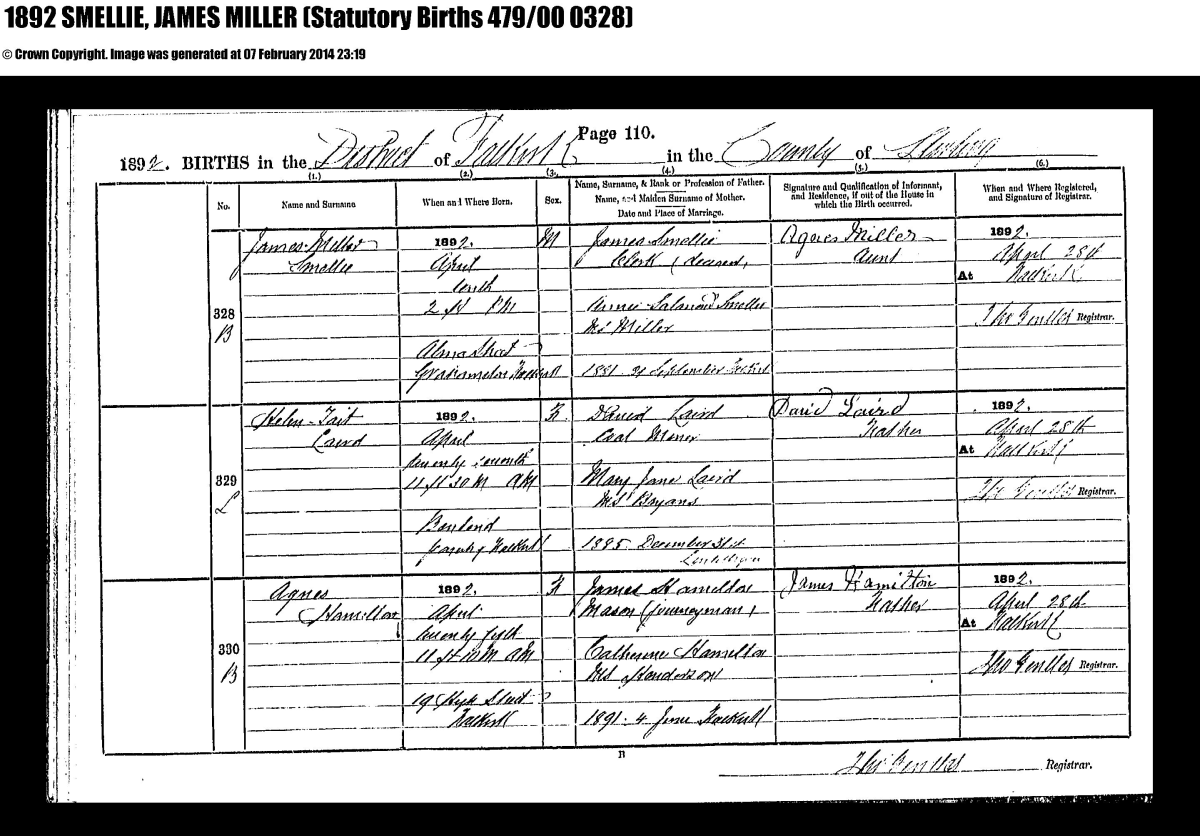 1892 SMELLIE, JAMES MILLER (Statutory Births 479/00 0328)
© Crown Copyright. Image was generated at 07 February 2014 23:19
Page 110.
1892. BIRTHS in the District of Falkirk in the County of Stirling
(1.) (2.) (3.) (4.) (5.) (6.)
No.
Name and Surname
When and Where Born.
Sex.
Name, Surname, & Rank or Profession of Father.
Name, and Maiden Surname of Mother.
Date and Place of Marriage.
Signature and Qualification of Informant,
and Residence, if out of the House in
which the Birth occurred.
When and Where Registered,
and Signature of Registrar.
328
James Miller
Smellie
1892.
April
tenth
2 h PM
Alma Street
Grahamston Falkirk
M
James Smellie
Clerk (deceased)
Annie Salmond Smellie
MS Miller
1881 21 September Falkirk
Agnes Miller
Aunt
1892.
April 28th
At Falkirk
Tho Gentles Registrar.
329
Helen Tait
Laird
1892.
April
twenty seventh
11 h 30 M AM
Falkirk
F
David Laird
Coal Miner
Mary Jane Laird
MS Bryans
1885 December 31st
Linlithgow
David Laird
Father
1892.
April 28th
At Falkirk
Tho Gentles Registrar.
330
B
Agnes
Hamilton
1892.
April
11 h 10 M AM
19 High Street
Falkirk
F
James Hamilton
Mason (Journeyman)
Catherine Hamilton
MS Henderson
1891 4 June Falkirk
James Hamilton
Father
1892.
April 28th
At Falkirk
Tho Gentles Registrar.
Tho Gentles Registrar.